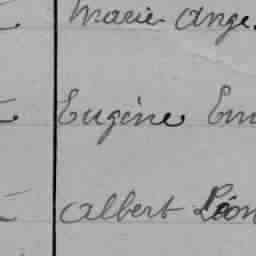 Marie Ange
Eugène Em
Albert Léon